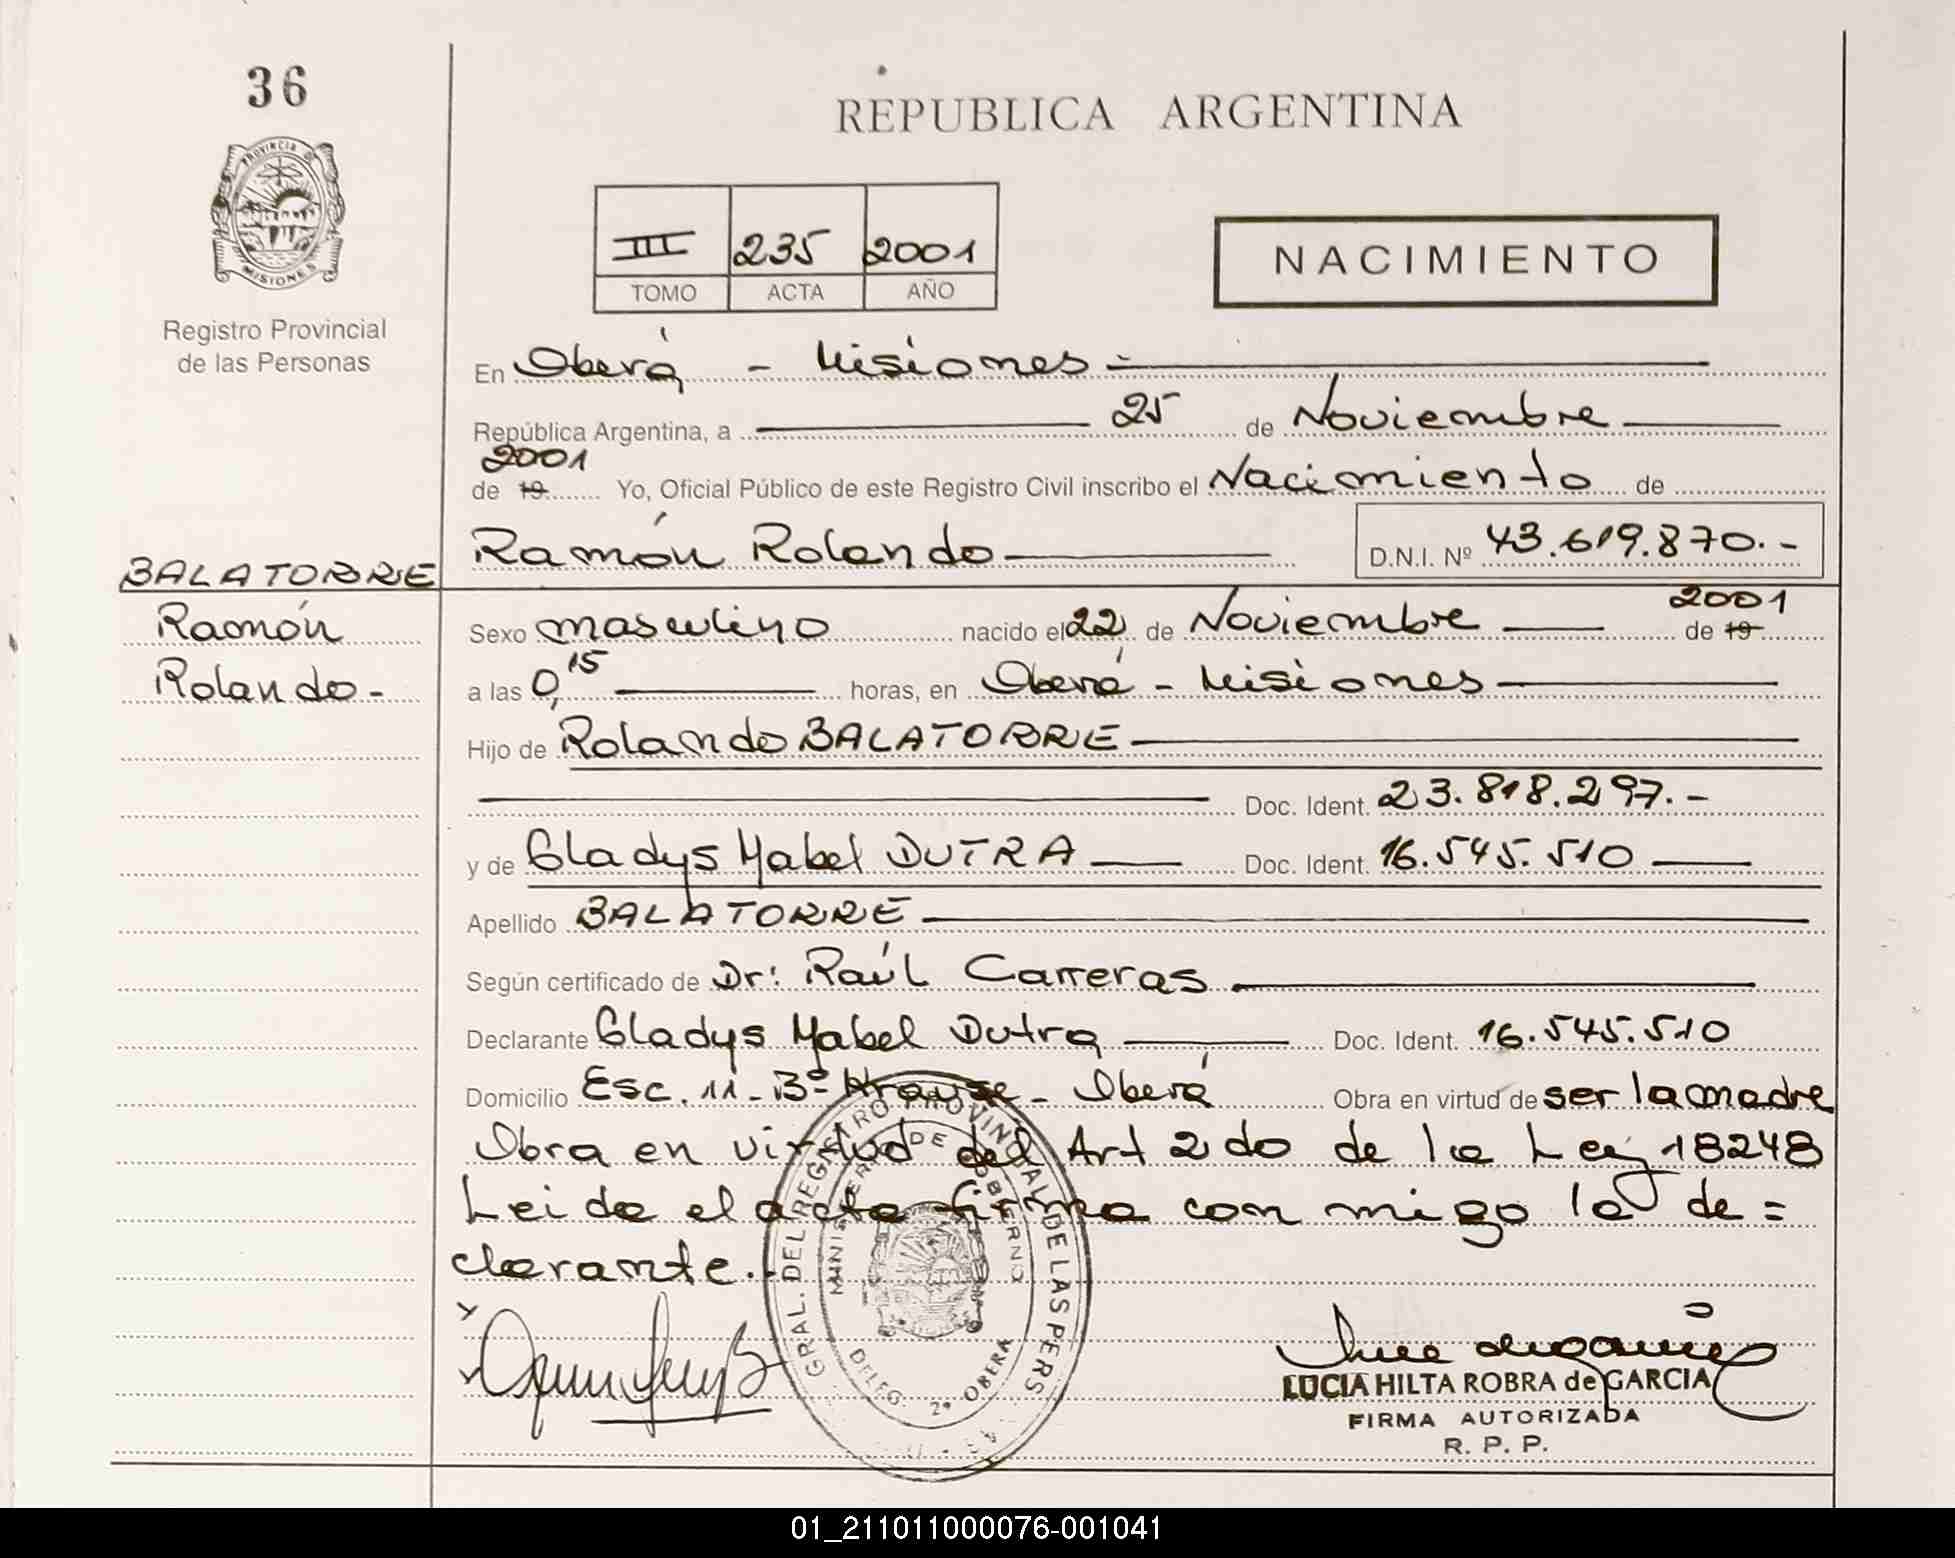 36
REPUBLICA ARGENTINA
PROVINCIA DE
MISIONES
III 235 2001
TOMO ACTA AÑO
NACIMIENTO
Registro Provincial
de las Personas
En Oberá - Misiones -
República Argentina, a 25 de Noviembre
2001
de 19 Yo, Oficial Público de este Registro Civil inscribo el Nacimiento de
Ramón Rolando D.N.I. Nº 43.619.870.-
BALATORRE
Ramón
Rolando-
2001
Sexo masculino nacido el 22 de Noviembre de 19
a las 0,15 horas, en Oberá - Misiones
Hijo de Rolando BALATORRE
Doc. Ident. 23.818.297.-
y de Gladys Mabel DUTRA Doc. Ident. 16.545.510
Apellido BALATORRE
Según certificado de Dr: Raúl Carreras
Declarante Gladys Mabel Dutra Doc. Ident. 16.545.510
Domicilio Esc. 11 - Bº Krause - Oberá Obra en virtud de ser la madre
Obra en virtud del Art 2do de la Ley 18248
Leida el acta firma con migo la de=
clarante.-
GRAL. DEL REGISTRO PROVINCIAL DE LAS PERS
MINISTERIO DE GOBIERNO
DELEG. 2ª OBERA
LUCIA HILTA ROBRA de GARCIA
FIRMA AUTORIZADA
R. P. P.
01_211011000076-001041